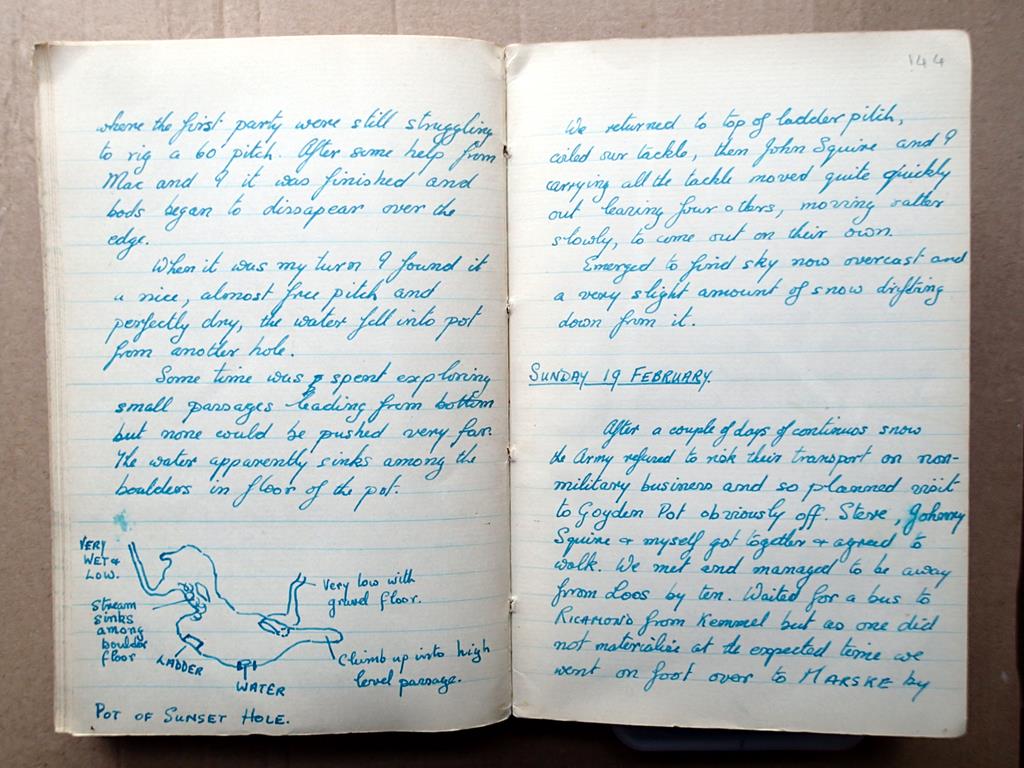 where the first party were still struggling
to rig a 60 pitch. After some help from
Mac and I it was finished and
bods began to dissapear over the
edge.
When it was my turn I found it
a nice, almost free pitch and
perfectly dry, the water fell into pot
from another hole.
Some time was spent exploring
small passages leading from bottom
but none could be pushed very far.
The water apparently sinks among the
boulders in floor of the pot.
VERY
WET &
LOW.
Stream
sinks
among
boulder
floor
LADDER
WATER
Very low with
gravel floor.
Climb up into high
level passage.
POT OF SUNSET HOLE.
144
We returned to top of ladder pitch,
coiled our tackle, then John Squire and I
carrying all the tackle moved quite quickly
out leaving four others, moving rather
slowly, to come out on their own.
Emerged to find sky now overcast and
a very slight amount of snow drifting
down from it.
SUNDAY 19 FEBRUARY.
After a couple of days of continuos snow
the Army refused to risk their transport on non-
military business and so planned visit
to Goyden Pot obviously off. Steve, Johnny
Squire & myself got together & agreed to
walk. We met and managed to be away
from Loos by ten. Waited for a bus to
RICHMOND from Kemmel but as one did
not materialise at the expected time we
went on foot over to MARSKE by